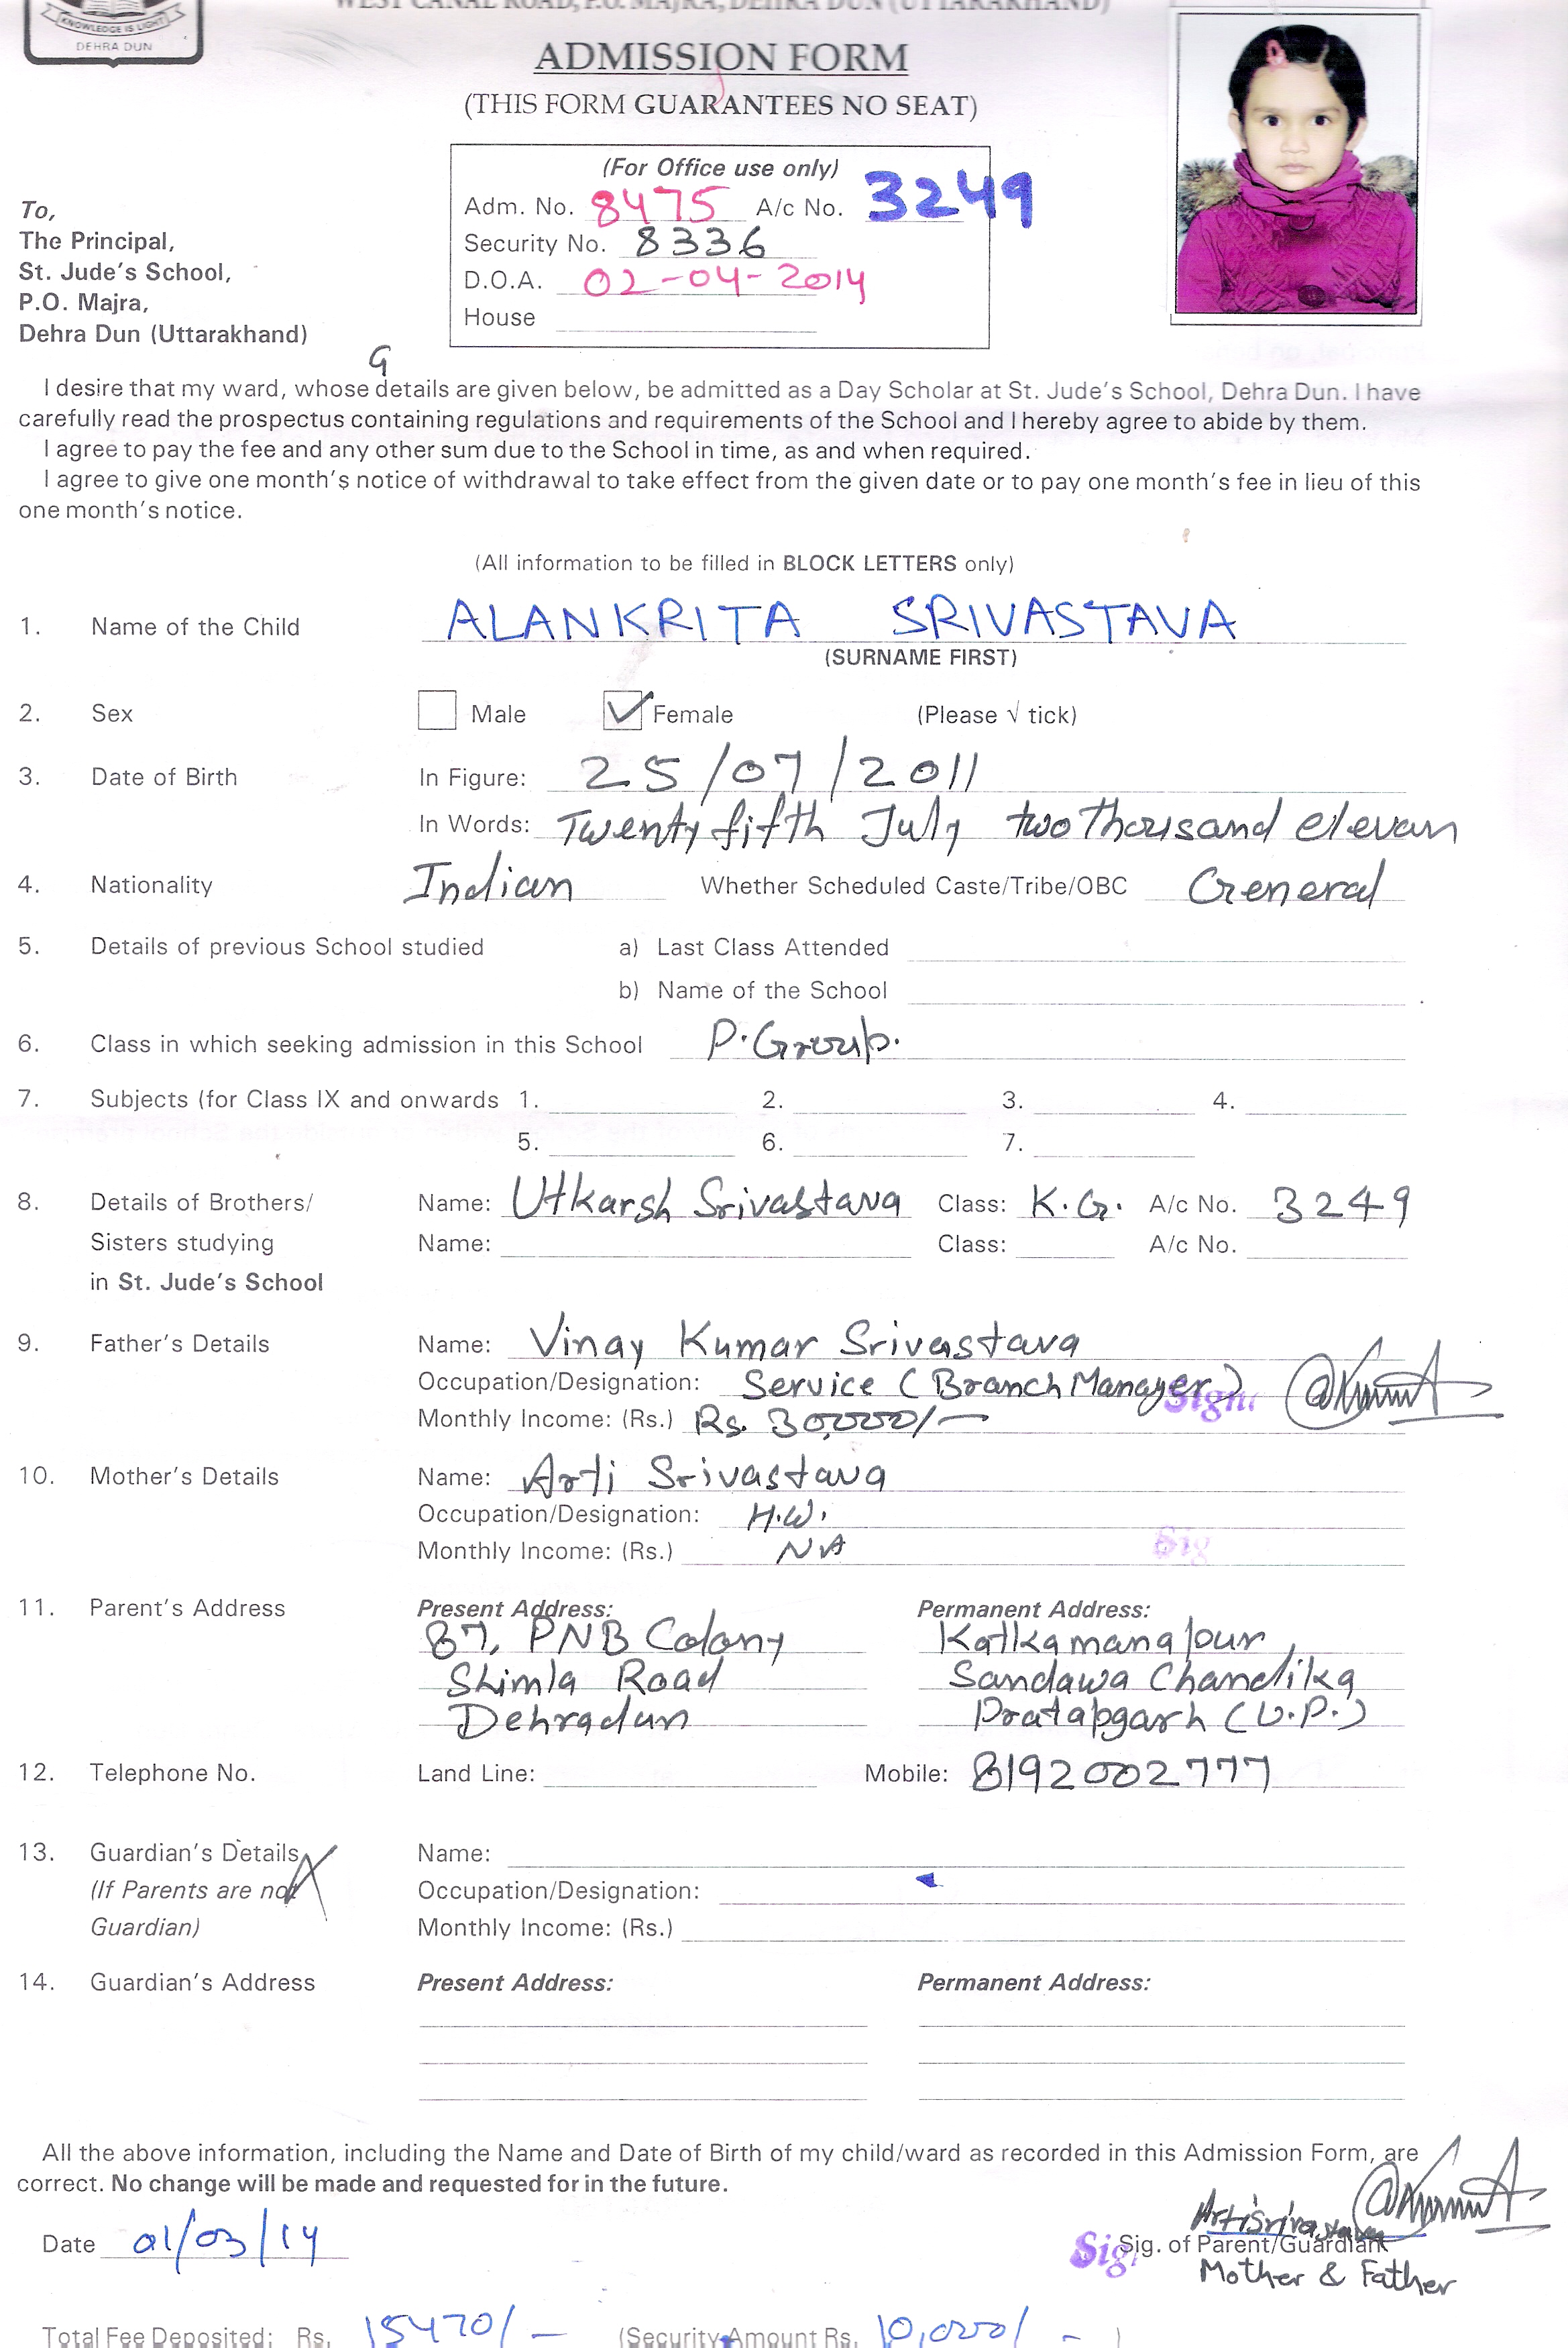 KNOWLEDGE IS LIGHT
DEHRA DUN
WEST CANAL ROAD, P.O. MAJRA, DEHRA DUN (UTTARAKHAND)
ADMISSION FORM
(THIS FORM GUARANTEES NO SEAT)
(For Office use only)
Adm. No. 8475 A/c No. 3249
Security No. 8336
D.O.A. 02-04-2014
House
To,
The Principal,
St. Jude's School,
P.O. Majra,
Dehra Dun (Uttarakhand)
G
I desire that my ward, whose details are given below, be admitted as a Day Scholar at St. Jude's School, Dehra Dun. I have
carefully read the prospectus containing regulations and requirements of the School and I hereby agree to abide by them.
I agree to pay the fee and any other sum due to the School in time, as and when required.
I agree to give one month's notice of withdrawal to take effect from the given date or to pay one month's fee in lieu of this
one month's notice.
(All information to be filled in BLOCK LETTERS only)
1. Name of the Child ALANKRITA SRIVASTAVA
(SURNAME FIRST)
2. Sex Male ✓ Female (Please √ tick)
3. Date of Birth In Figure: 25/07/2011
In Words: Twenty fifth July two thousand elevan
4. Nationality Indian Whether Scheduled Caste/Tribe/OBC General
5. Details of previous School studied a) Last Class Attended
b) Name of the School
6. Class in which seeking admission in this School P.Group.
7. Subjects (for Class IX and onwards 1. 2. 3. 4.
5. 6. 7.
8. Details of Brothers/ Name: Utkarsh Srivastava Class: K.G. A/c No. 3249
Sisters studying Name: Class: A/c No.
in St. Jude's School
9. Father's Details Name: Vinay Kumar Srivastava
Occupation/Designation: Service (Branch Manager)
Monthly Income: (Rs.) Rs. 30,000/-
10. Mother's Details Name: Arti Srivastava
Occupation/Designation: H.W.
Monthly Income: (Rs.) NA
Sig
11. Parent's Address Present Address: Permanent Address:
87, PNB Colony Katkamanapur,
Shimla Road Sandawa Chandika
Dehradun Pratapgarh (U.P.)
12. Telephone No. Land Line: Mobile: 8192002777
13. Guardian's Details Name:
(If Parents are not Occupation/Designation:
Guardian) Monthly Income: (Rs.)
14. Guardian's Address Present Address: Permanent Address:
All the above information, including the Name and Date of Birth of my child/ward as recorded in this Admission Form, are
correct. No change will be made and requested for in the future.
Arti Srivastava
Date 01/03/14 Sig. Sig. of Parent/Guardian
Mother & Father
Total Fee Deposited: Rs. 15470/- (Security Amount Rs. 10,000/- )